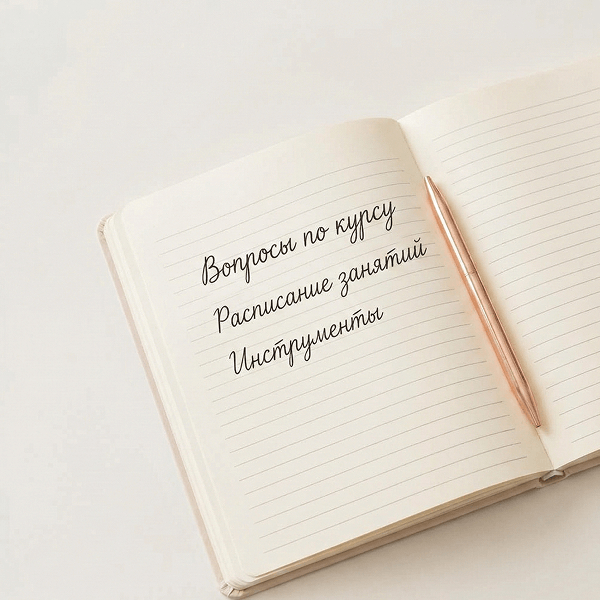 Вопросы по курсу
Расписание занятий
Инструменты